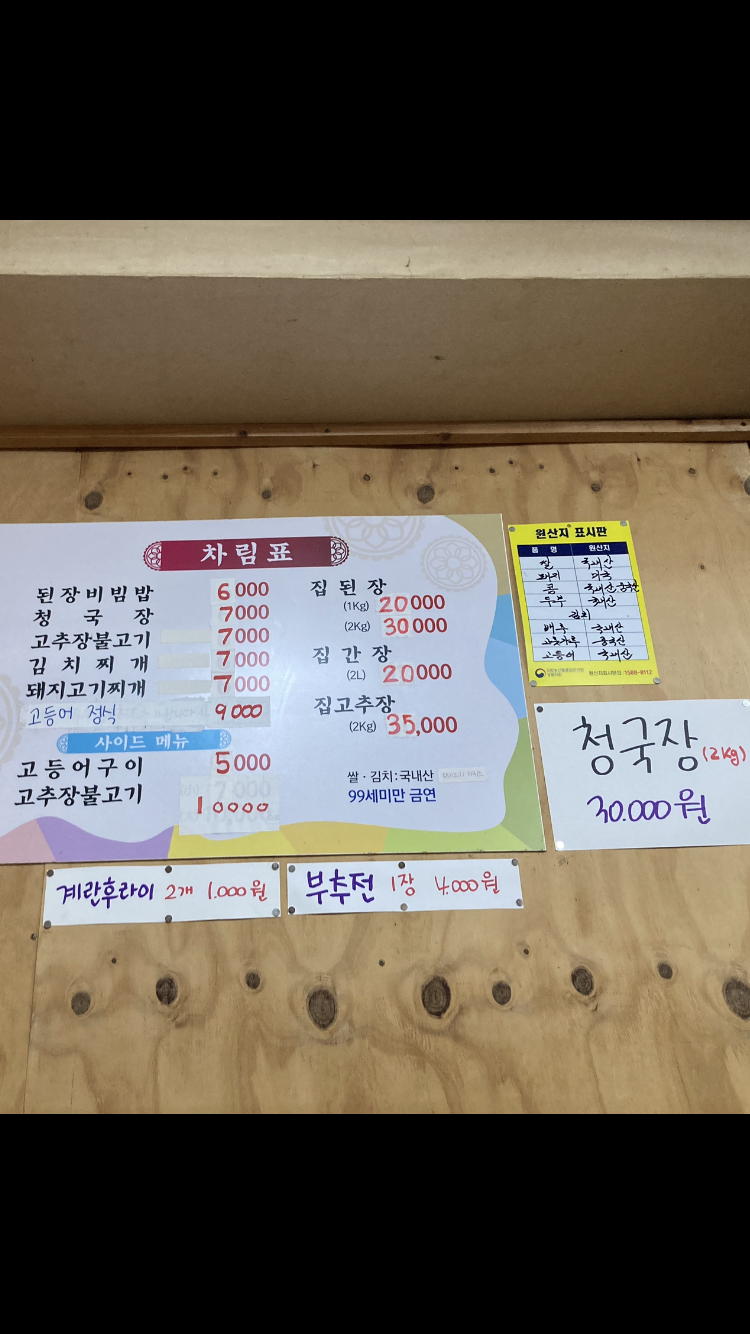 차림표
된장비빔밥 6000
청국장 7000
고추장불고기 7000
김치찌개 7000
돼지고기찌개 7000
고등어 정식 9000
사이드 메뉴
고등어구이 5000
고추장불고기 10000
집된장
(1Kg) 20000
(2Kg) 30000
집간장
(2L) 20000
집고추장
(2Kg) 35,000
쌀·김치:국내산
99세미만 금연
원산지 표시판
품명 원산지
쌀 국내산
돼지 미국
콩 국내산 중국산
두부 국내산
김치
배추 국내산
고춧가루 중국산
고등어 국내산
원산지표시문의 : 1588-8112
청국장 (2kg)
30.000원
계란후라이 2개 1.000원
부추전 1장 4.000원